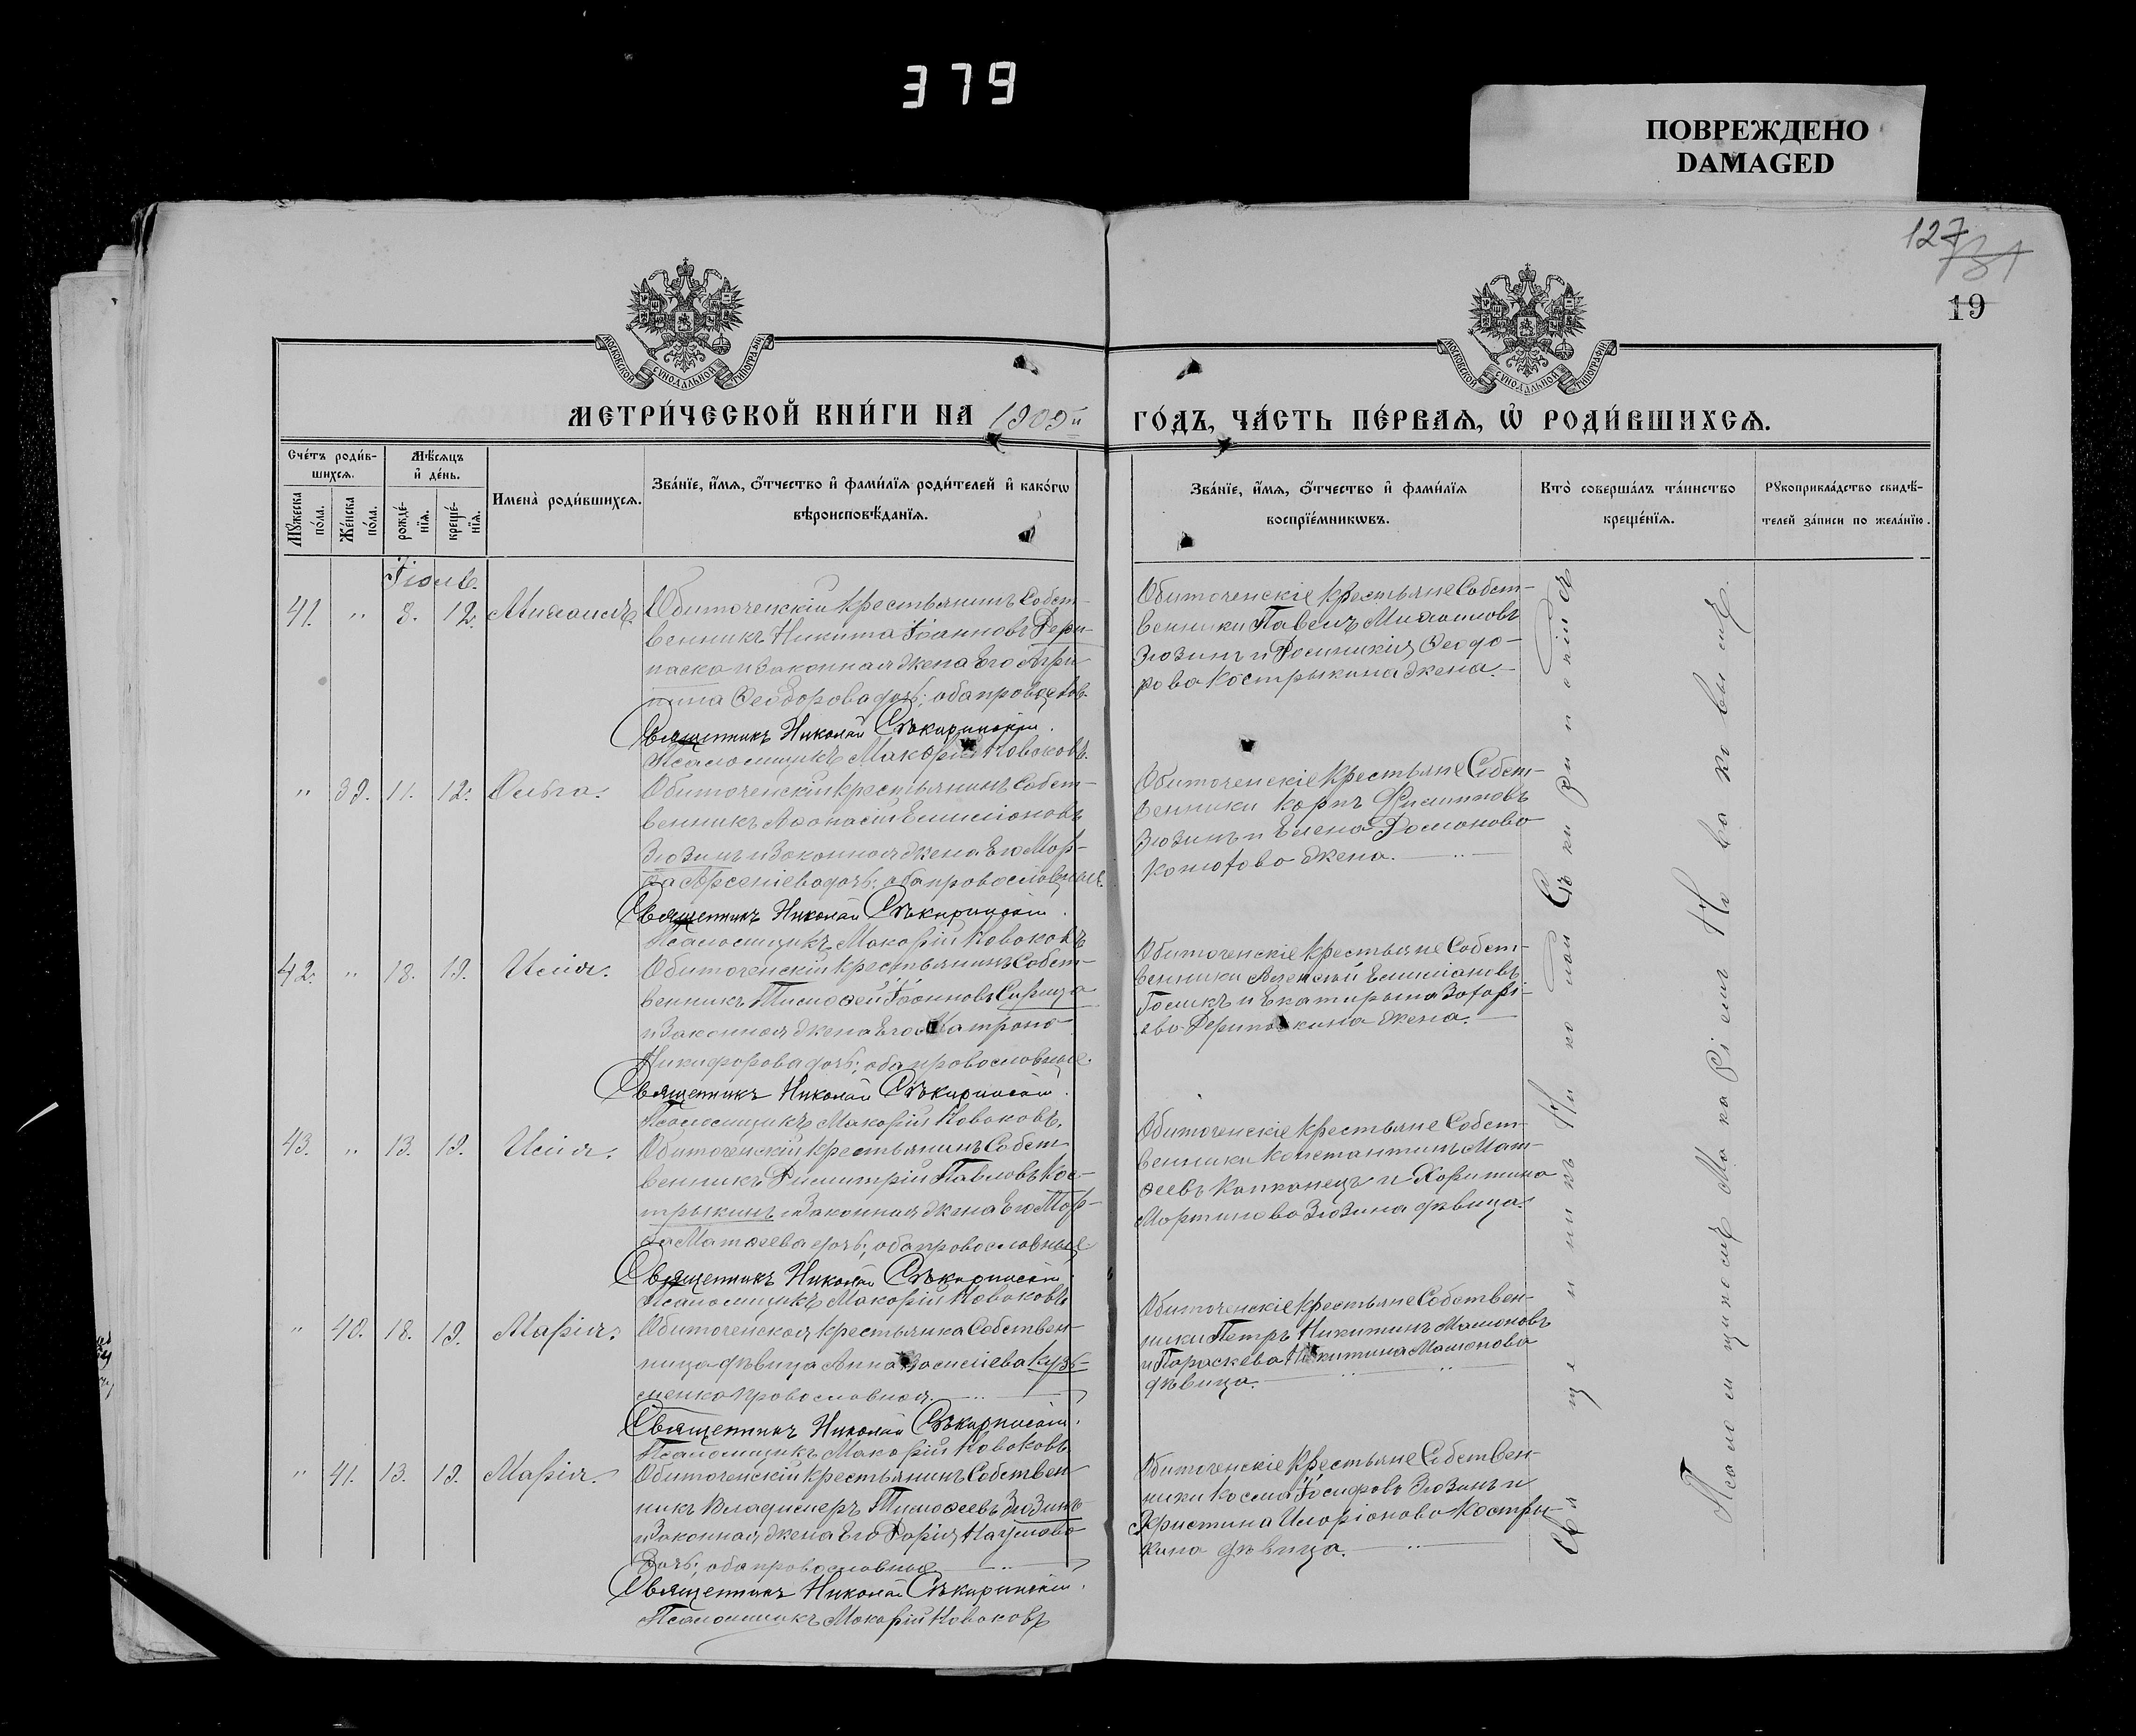 379
ПОВРЕЖДЕНО
DAMAGED
127
19
МОСКОВСКОЙ СѴНОДАЛЬНОЙ ТИПОГРАФІИ
МОСКОВСКОЙ СѴНОДАЛЬНОЙ ТИПОГРАФІИ
МЕТРИ́ЧЕСКОЙ КНИ́ГИ НА 1909й ГО́ДЪ, ЧА́СТЬ ПЕ́РВАЯ, Ѽ РОДИ́ВШИХСЯ.
Сче́тъ роди́в-
шихся.
Мѣ́сяцъ
и҆ де́нь.
Мꙋ́жеска по́ла.
Же́нска по́ла.
рожде́-нїя.
креще́-нїя.
Имена̀ роди́вшихся.
Зва́нїе, и҆́мя, о҆́тчество и҆ фами́лїя роди́телей и҆ како́гѡ
вѣроисповѣ́данїя.
Зва́нїе, и҆́мя, о҆́тчество и҆ фами́лїя
воспрїе́мникѡвъ.
Кто̀ соверша́лъ та́инство
креще́нїя.
Рꙋкоприкла́дство свидѣ́-
телей за́писи по жела́нїю.
Іюль.
41. " 8. 12. Михаилъ.
Обиточенскій крестьянинъ Собст-
венникъ Никита Іоанновъ Дери-
паско и законная жена Его Агри-
пина Ѳеодорова дочь; оба православ.
Священникъ Николай Сѣкиринскій.
Псаломщикъ Макарій Новаковъ.
Обиточенскіе крестьяне Собст-
венники Павелъ Михаиловъ
Зюзинъ и Домникія Ѳеодо-
рова Кострыкина жена.
" 39. 11. 12. Ольга.
Обиточенскій крестьянинъ Собст-
венникъ Аѳонасій Емиліановъ
Зюзинъ и законная жена Его Мар-
ѳа Арсеніева дочь; оба православные.
Священникъ Николай Сѣкиринскій.
Псаломщикъ Макарій Новаковъ
Обиточенскіе крестьяне Собст-
венники Карпъ Филиповъ
Зюзинъ и Елена
жена.
42. " 18. 19. Илія.
Обиточенскій крестьянинъ Собст-
венникъ Тимоѳей Іоанновъ Сирица
и законная жена Его Матрона
Никифорова дочь; оба православные.
Священникъ Николай Сѣкиринскій.
Псаломщикъ Макарій Новаковъ.
Обиточенскіе крестьяне Собст-
венники Алексѣй Емиліановъ
Голикъ и Екатирына Захарі-
ева Дерипаскина жена.
43. " 13. 19. Илія.
Обиточенскій крестьянинъ Собст
венникъ Димитрій Павловъ Кос-
трыкинъ и законная жена Его Мар-
ѳа Матѳеева дочь; оба православные
Священникъ Николай Сѣкиринскій.
Псаломщикъ Макарій Новаковъ
Обиточенскіе крестьяне Собст-
венники Константинъ Мат-
ѳеевъ Капканецъ и Харитина
Мартинова Зюзина дѣвица.
" 40. 18. 19. Марія.
Обиточенская крестьянка Собствен-
ница дѣвица Анна Василіева Кузь-
менко православная.
Священникъ Николай Сѣкиринскій.
Псаломщикъ Макарій Новаковъ
Обиточенскіе крестьяне Собствен-
ники Петръ Никитинъ Мамоновъ
и Параскева Никитина Мамонова
дѣвица.
" 41. 13. 19. Марія.
Обиточенскій крестьянинъ Собствен
никъ Владимеръ Тимоѳеевъ Зюзинъ
и законная жена Его Дарія Наумова
дочь; оба православные
Священникъ Николай Сѣкиринскій.
Псаломщикъ Макарій Новаковъ
Обиточенскіе крестьяне Собствен-
ники Косма Іосифовъ Зюзинъ и
Христина Иларіонова Костры-
кина дѣвица.
Священникъ Николай Сѣкиринскій
Псаломщикъ Макарій Новаковъ.